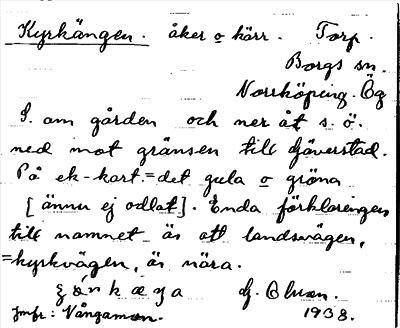 Kyrkängen. åker o kärr. Torp.
Borgs sn.
Norrköping. Ög
S. om gården och ner åt s. ö.
ned mot gränsen till Gäverstad.
På ek-kart. = det gula o gröna
[ännu ej odlat]. Enda förklaringen
till namnet är att landsvägen,
=kyrkvägen, är nära.
G. Olson.
Jmfr: Vångaman. 1938.